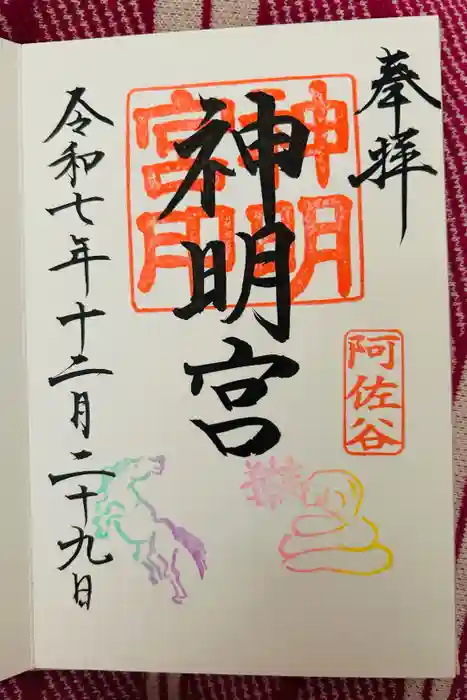 奉拝
阿佐谷
神明宮
神明宮用
令和七年十二月二十九日